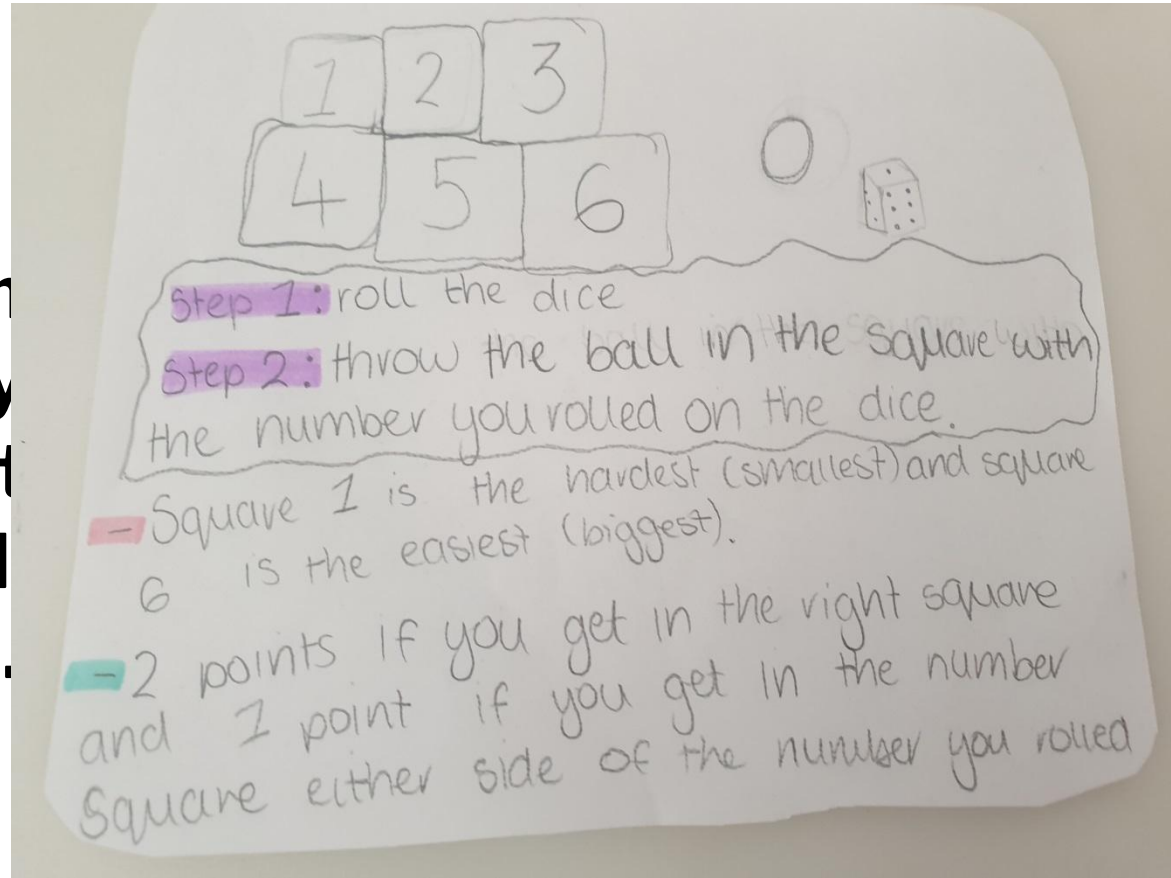 1 2 3
4 5 6
Step 1: roll the dice
Step 2: throw the ball in the square with
the number you rolled on the dice.
- Square 1 is the hardest (smallest) and square
6 is the easiest (biggest).
- 2 points if you get in the right square
and 1 point if you get in the number
square either side of the number you rolled